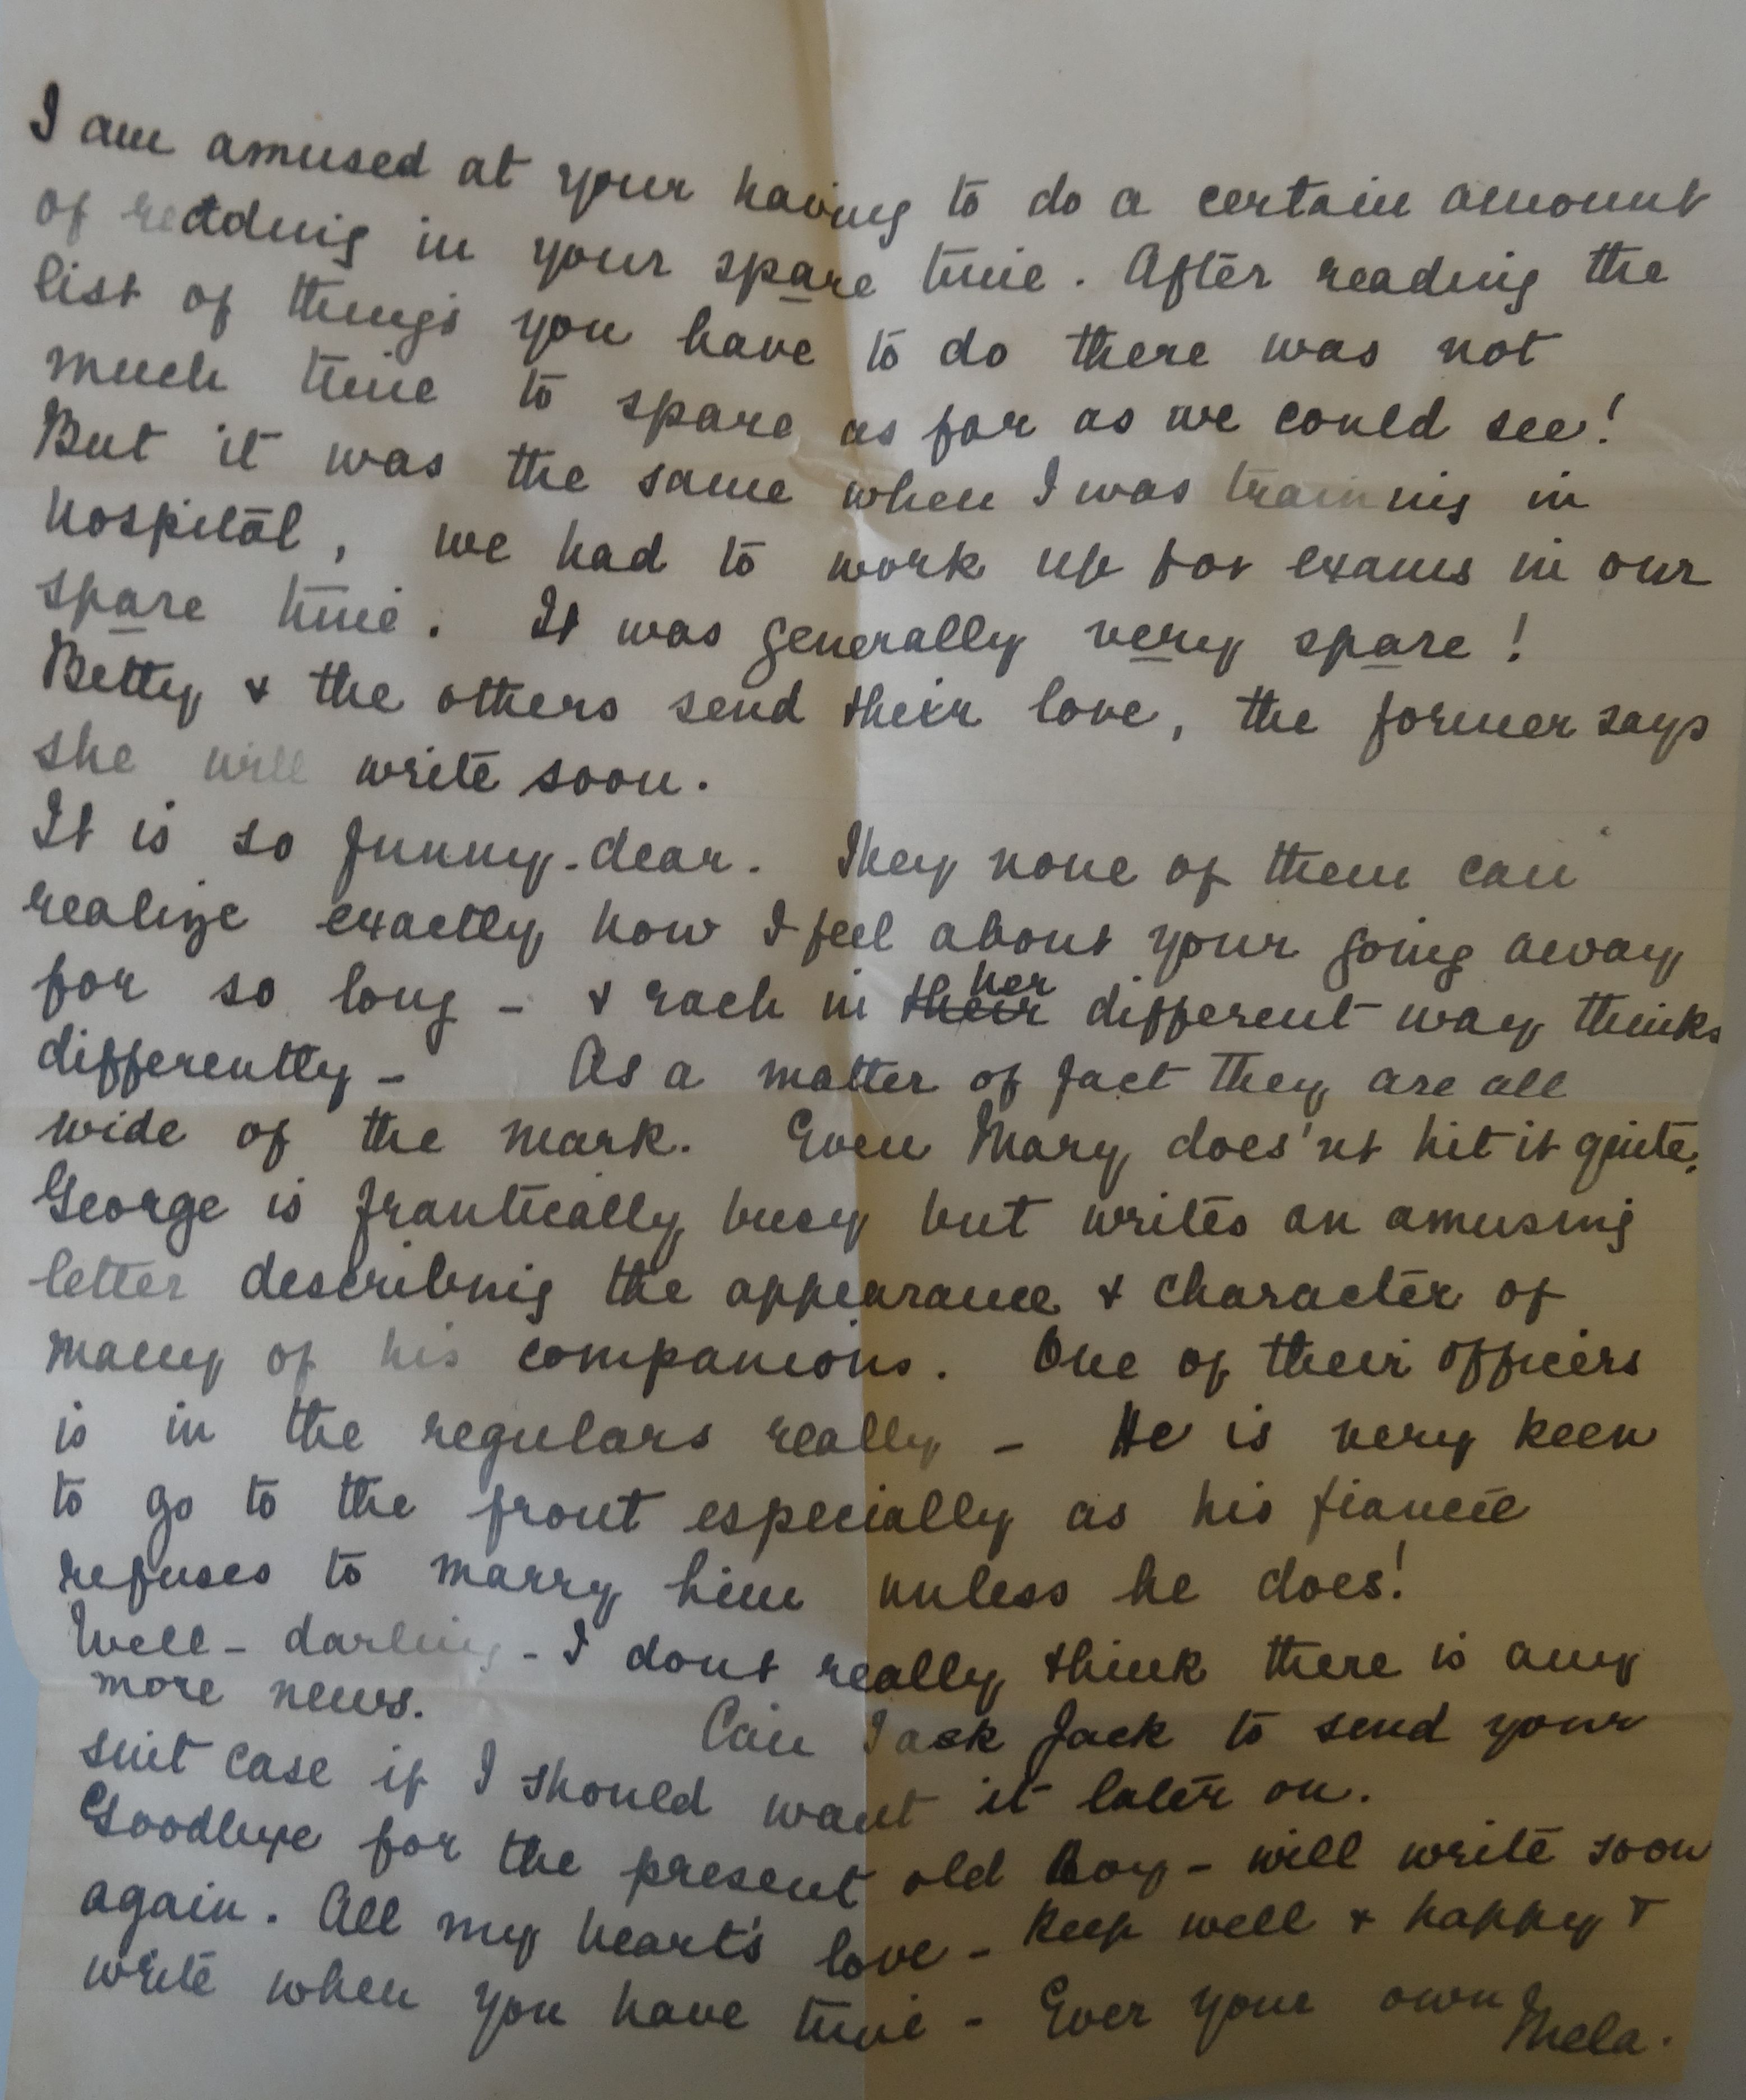 I am amused at your having to do a certain amount
of reading in your spare time. After reading the
list of things you have to do there was not
much time to spare as far as we could see!
But it was the same when I was training in
hospital, we had to work up for exams in our
spare time. It was generally very spare!
Betty & the others send their love, the former says
she will write soon.
It is so funny - dear. They none of them can
realize exactly how I feel about your going away
for so long - & each in their her different way thinks
differently - As a matter of fact they are all
wide of the mark. Even Mary does'nt hit it quite.
George is frantically busy but writes an amusing
letter describing the appearance & character of
many of his companions. One of their officers
is in the regulars really - He is very keen
to go to the front especially as his fiancée
refuses to marry him unless he does!
Well - darling - I dont really think there is any
more news. Can I ask Jack to send your
suit case if I should want it later on.
Goodbye for the present old Boy - will write soon
again. All my heart's love - Keep well & happy &
write when you have time - Ever your own
Mela.